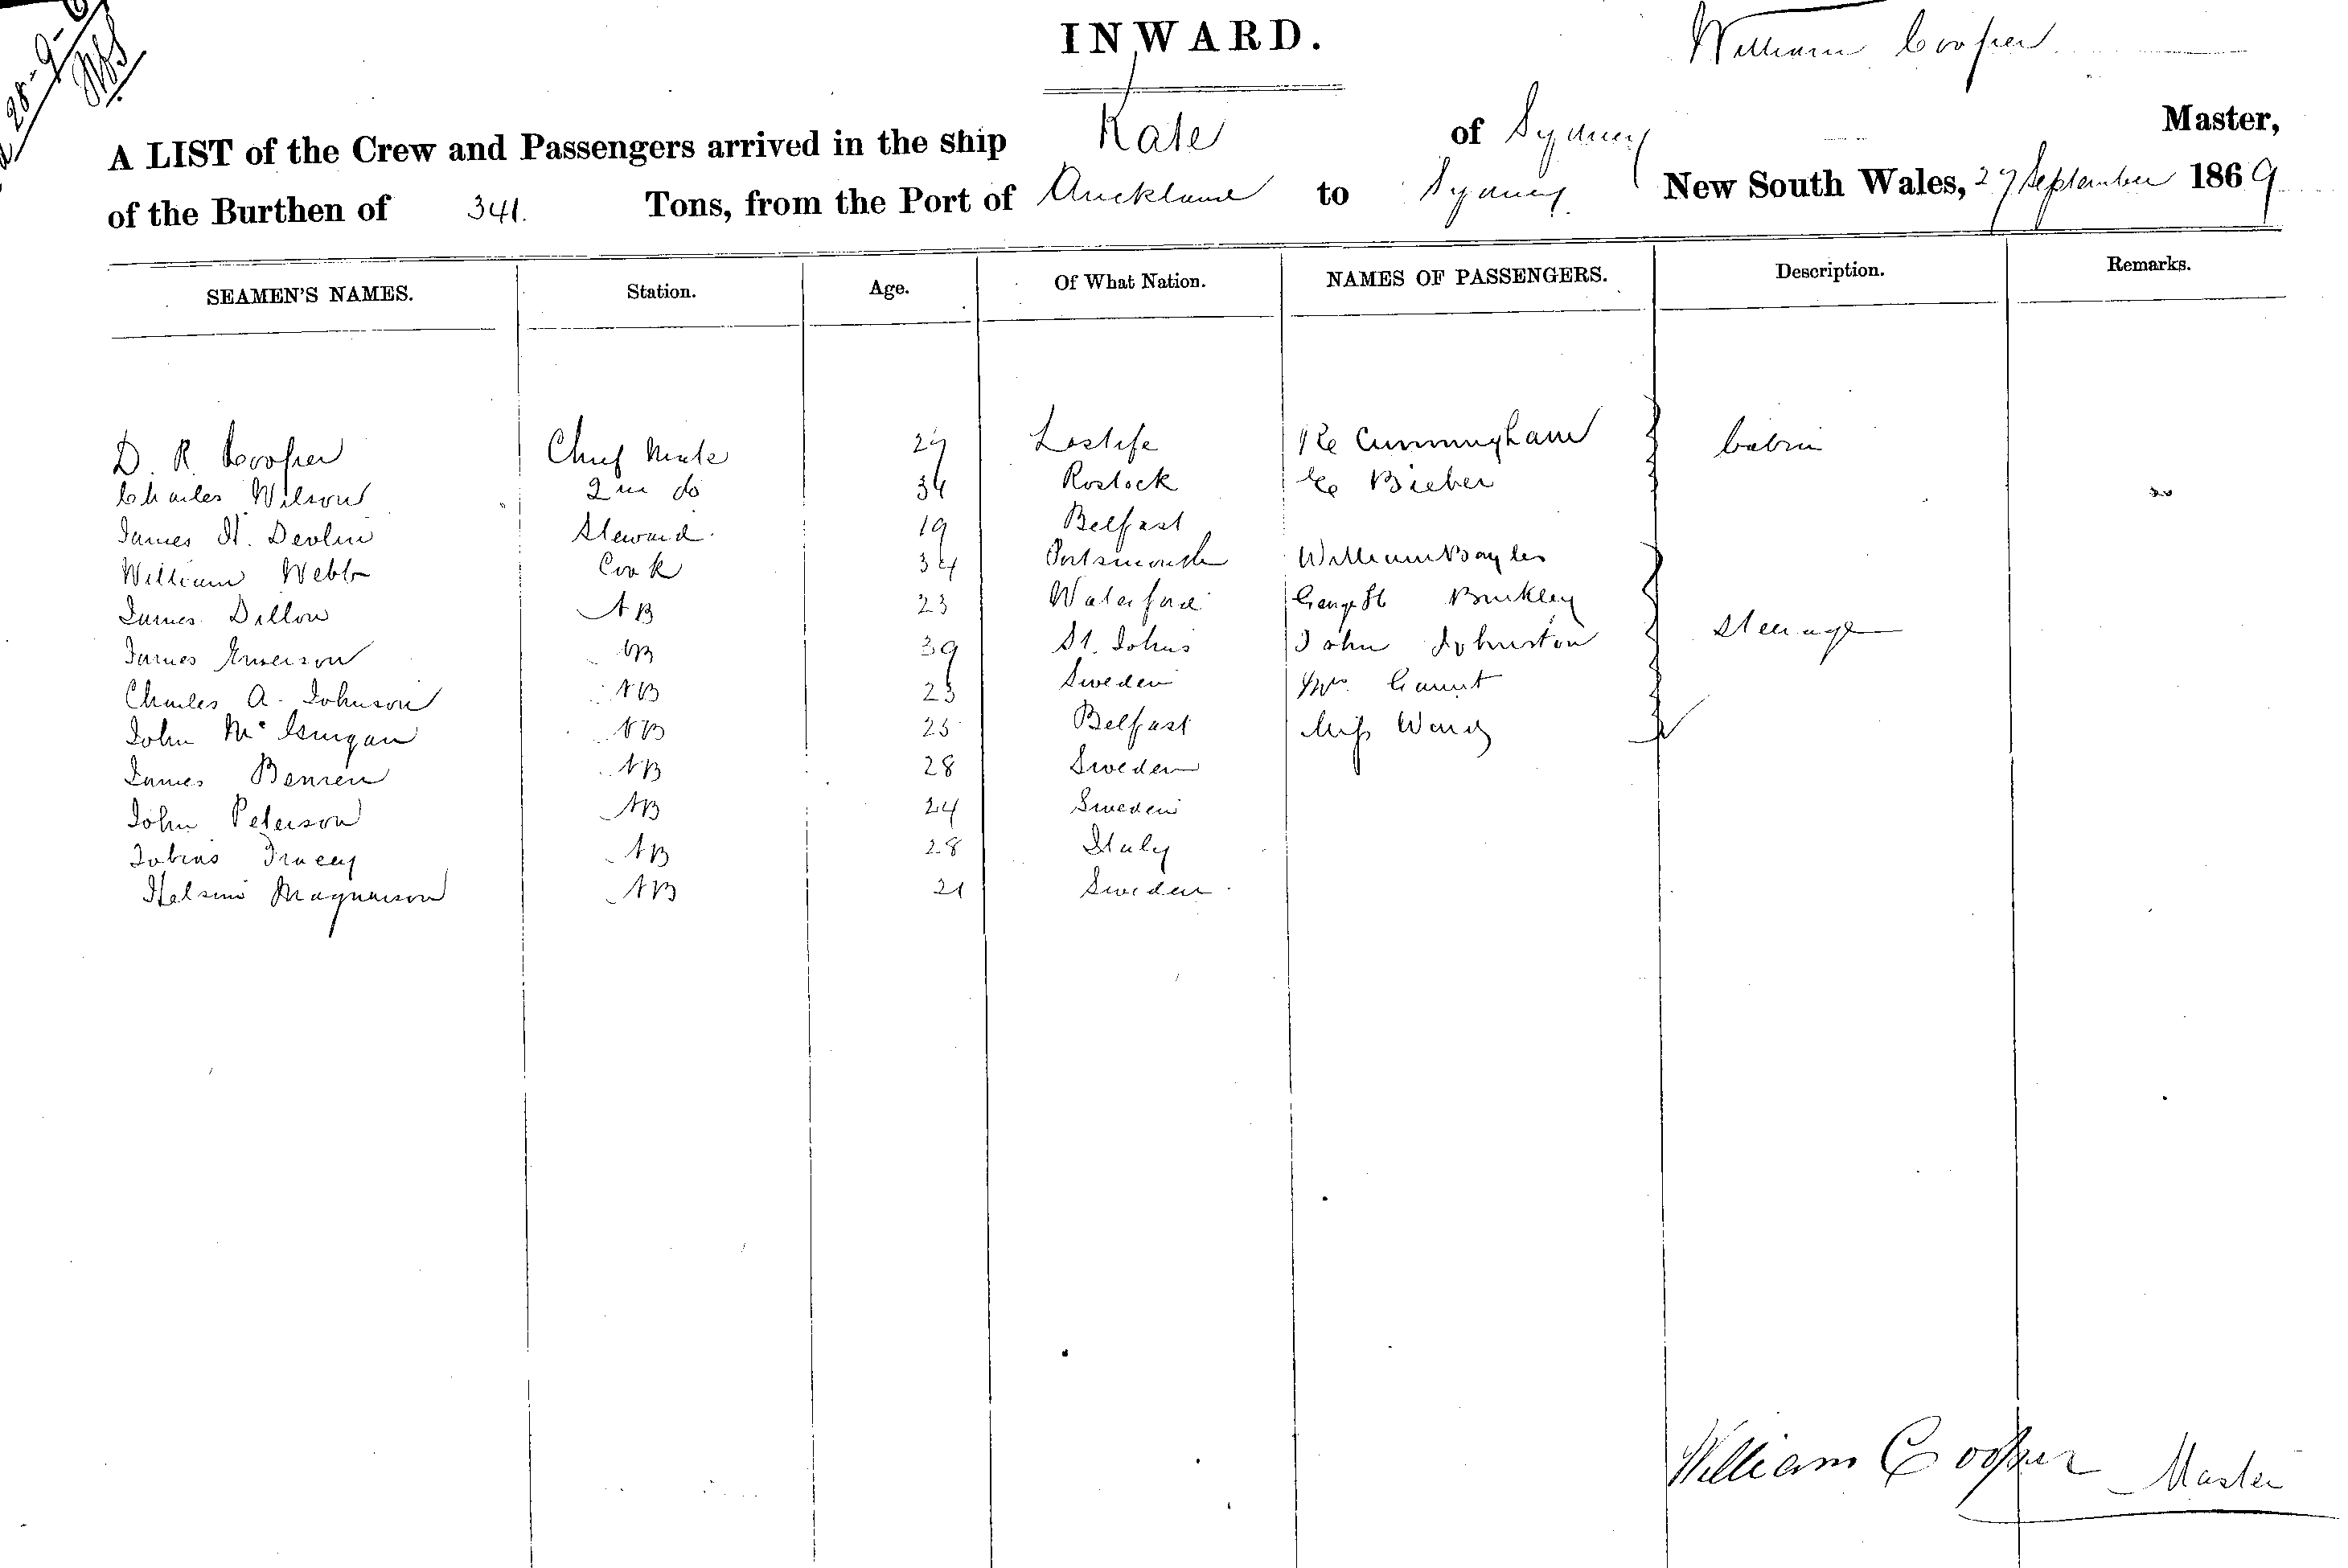 28-9-
INWARD.
William Cooper
A LIST of the Crew and Passengers arrived in the ship Kate of Sydney Master,
of the Burthen of 341. Tons, from the Port of Auckland to Sydney New South Wales, 27 September 1869
SEAMEN'S NAMES. Station. Age. Of What Nation. NAMES OF PASSENGERS. Description. Remarks.
D. R. Cooper Chief Mate 27 Cunningham Cabin
Charles Wilson 2nd do 34 Rostock Bieber
James H. Devlin Steward. 19 Belfast
William Webb Cook 34 Portsmouth William Bayles
James Dillon AB 23 Waterford George H Buckley
James Emerson AB 39 St. Johns John Johnston Steerage
Charles A. Johnson AB 23 Sweden Mrs. Gaunt
John McGuigan AB 25 Belfast Miss Ward
James Bensen AB 28 Sweden
John Peterson AB 24 Sweden
Tobias Tracey AB 28 Italy
Magnuson AB 21 Sweden
William Cooper Master